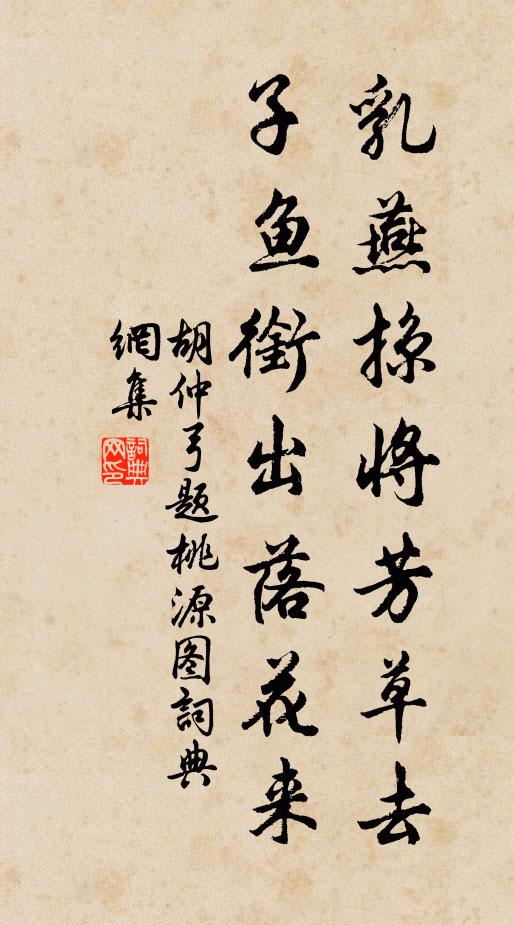 乳燕掠将芳草去
子鱼衔出落花来
胡仲弓题桃源图詞典
網集
詞典网印